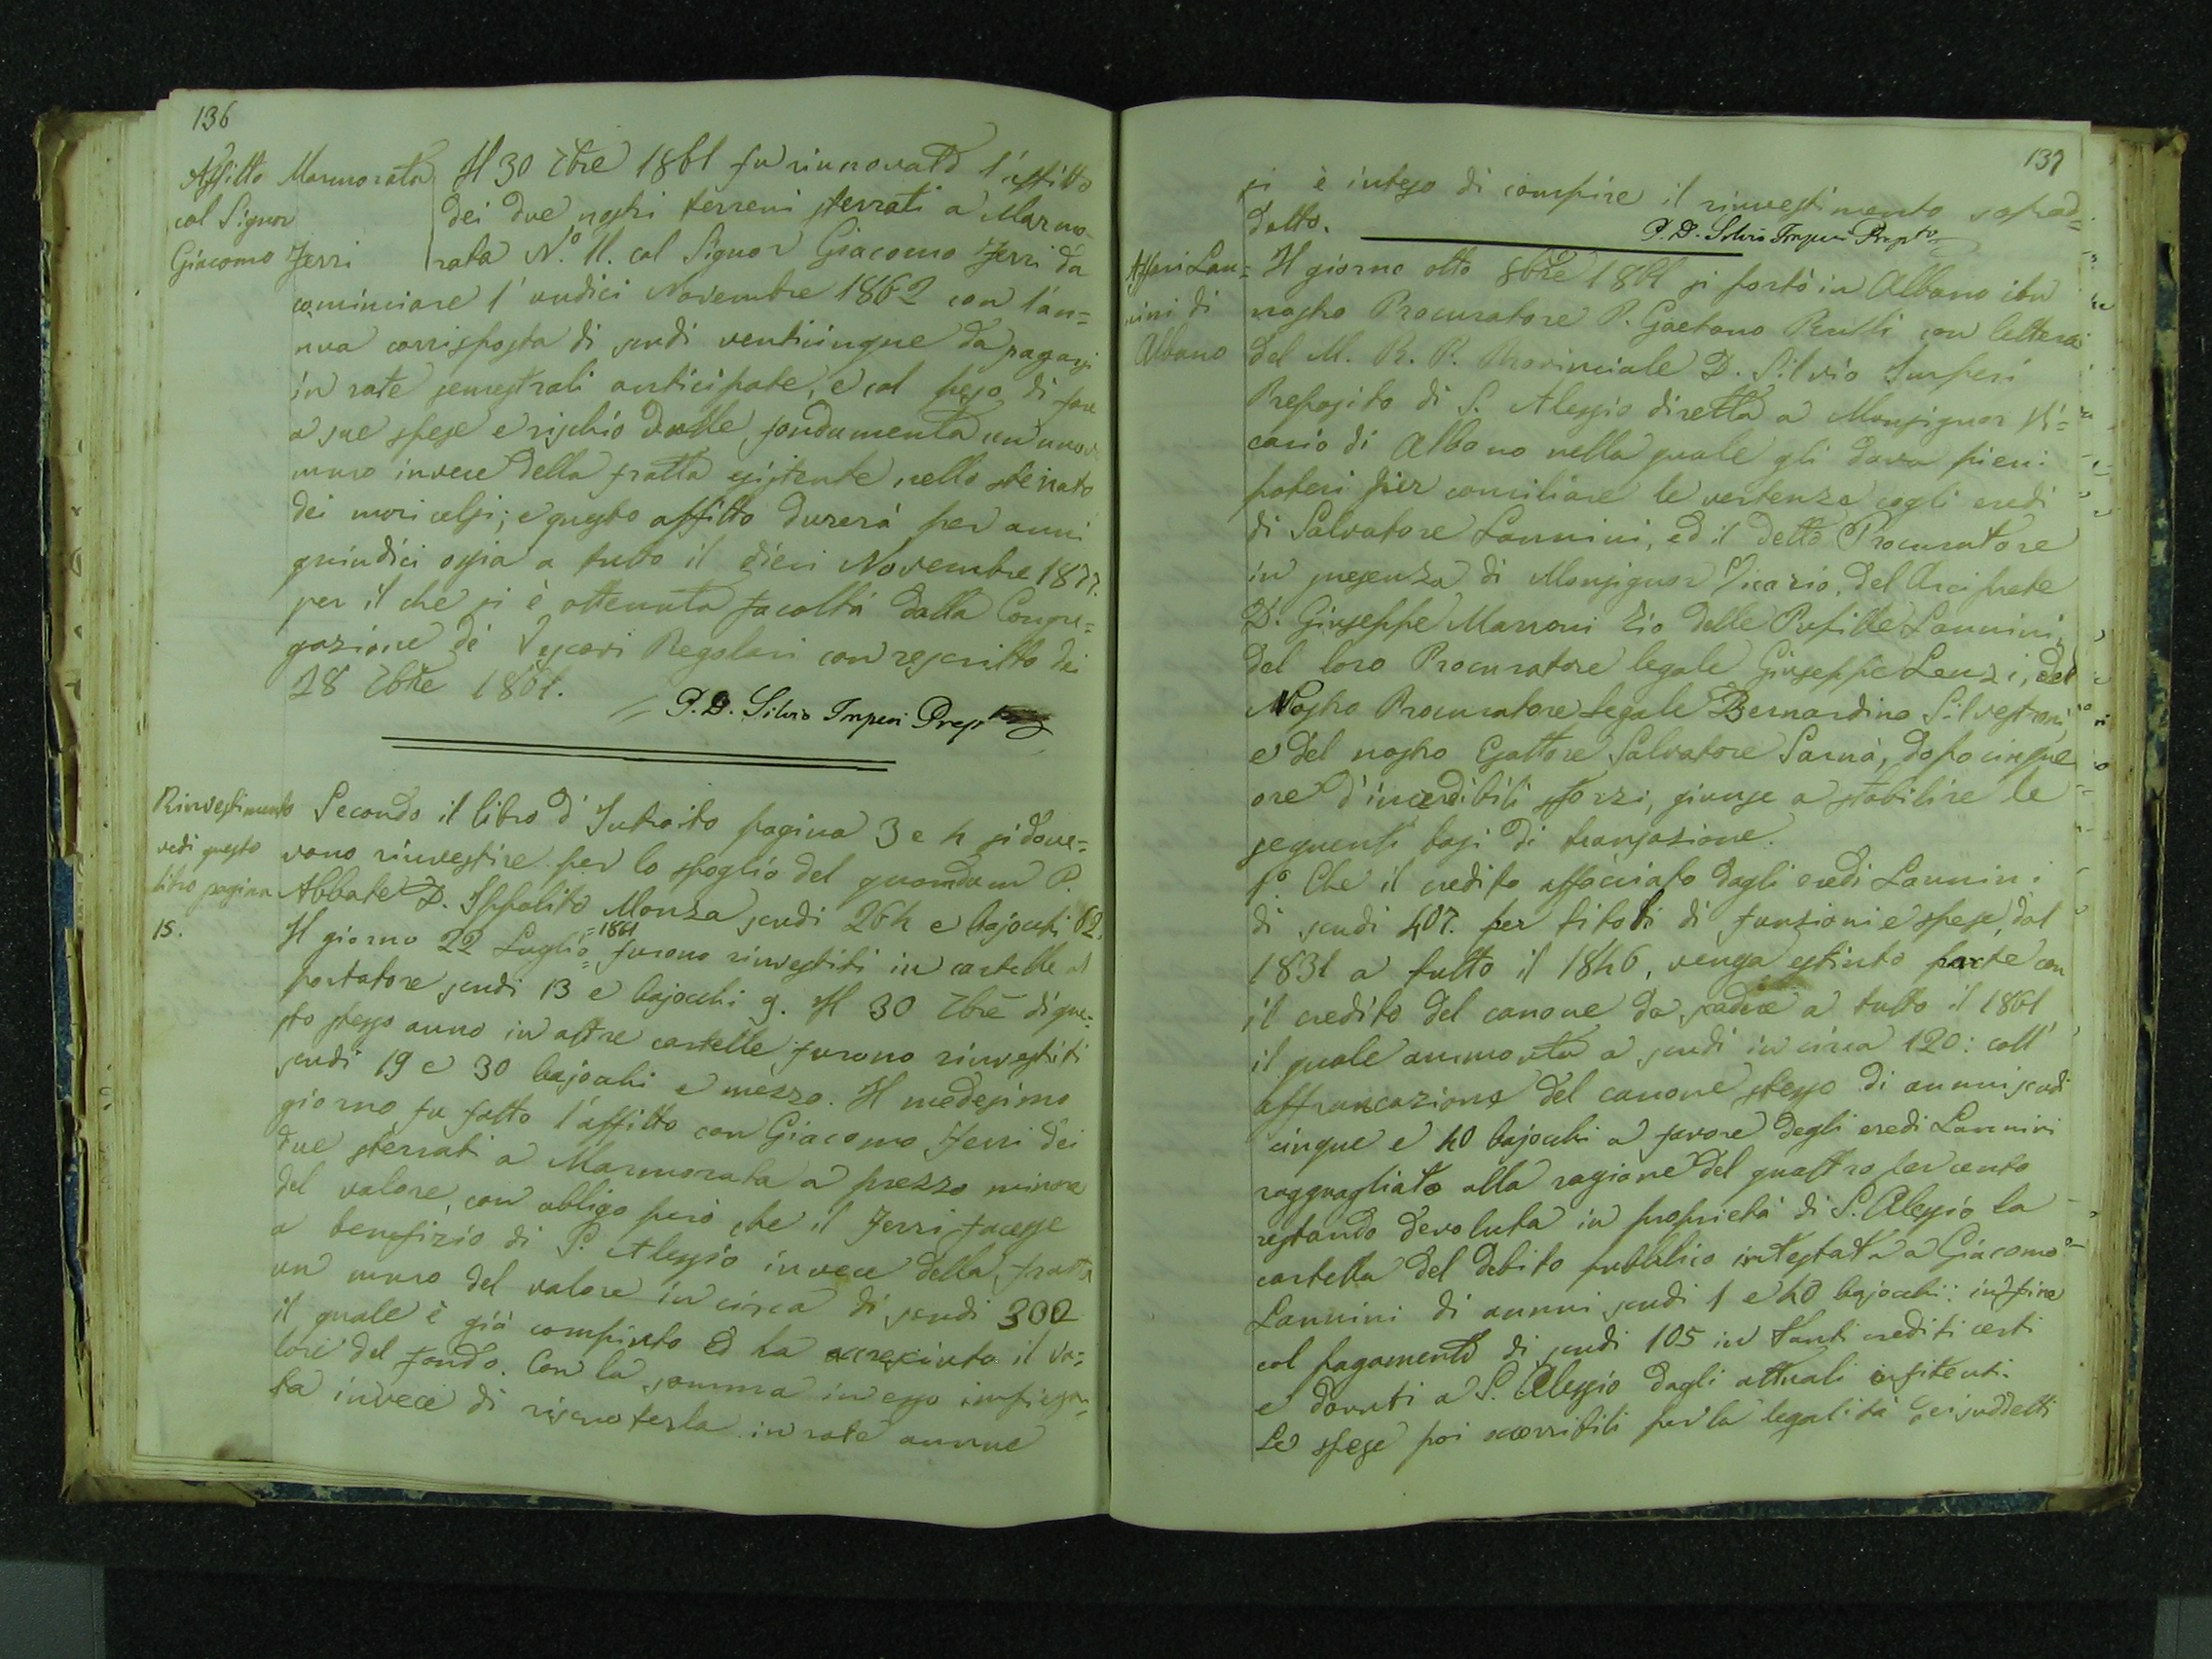 136
Affitto Marmorata
col Signor
Giacomo Ferri
Il 30 7bre 1861 fu rinnovato l'affitto
dei due nostri terreni sterrati a Marmo-
rata N.º 11. col Signor Giacomo Ferri da
cominciare l'undici Novembre 1862 con l'an=
nua corrisposta di scudi venticinque da pagarsi
in rate semestrali anticipate, e col peso di fare
a sue spese e rischio dalle fondamenta un nuovo
muro invece della fratta esistente nello sterrato
dei mori celsi; e questo affitto durerà per anni
quindici ossia a tutto il dieci Novembre 1877.
per il che si è ottenuta facoltà dalla Congre=
gazione dè Vescovi Regolari con rescritto dei
28 7bre 1861.
P. D. Silvio Imperi Prepto
Rinvestimento
vedi questo
libro pagina
15.
Secondo il libro d'Introito pagina 3 e 4 si dove=
vano rinvestire per lo spoglio del quondam P.
Abbate D. Ippolito Monza scudi 264 e bajocchi 62.
Il giorno 22 Luglio =1861= furono rinvestiti in cartelle al
portatore scudi 13 e bajocchi 9. Il 30 7bre di que=
sto stesso anno in altre cartelle furono rinvestiti
scudi 19 e 30 bajocchi e mezzo. Il medesimo
giorno fu fatto l'affitto con Giacomo Ferri dei
due sterrati a Marmorata a prezzo minore
del valore, con obligo però che il Ferri facesse
a benefizio di S. Alessio invece della fratta
un muro del valore in circa di scudi 300
il quale è già compiuto ed ha accresciuto il va=
lore del fondo. Con la somma in esso impiega=
ta invece di riscuoterla in rate annue
137
si è inteso di compire il rinvestimento soprad=
detto.
P. D. Silvio Imperi Prepto
Affari Lan=
nini di
Albano
Il giorno otto 8bre 1861 si portò in Albano il
nostro Procuratore P. Gaetano Rulli con lettera
del M. R. P. Provinciale D. Silvio Imperi
Preposito di S. Alessio diretta a Monsignor Vi=
cario di Albano nella quale gli dava pieni
poteri per conciliare le vertenze cogli eredi
di Salvatore Lannini, ed il detto Procuratore
in presenza di Monsignor Vicario, del Arciprete
D. Giuseppe Marroni zio delle Pupille Lannini,
del loro Procuratore legale Giuseppe Lenzi, del
Nostro Procuratore legale Bernardino Silvestroni,
e del nostro Esattore Salvatore Sannà, dopo cinque
ore d'incredibili sforzi, giunse a stabilire le
seguenti basi di transazione.
1º Che il credito affacciato dagli eredi Lannini
di scudi 407. per titoli di funzioni e spese, dal
1831 a tutto il 1846, venga estinto parte con
il credito del canone da scadere a tutto il 1861
il quale ammonta a scudi in circa 120: coll'
affrancazione del canone stesso di annui scudi
cinque e 40 bajocchi a favore degli eredi Lannini
ragguagliato alla ragione del quattro per cento
restando devoluta in proprietà di S. Alessio la
cartella del debito pubblico intestata a Giacomo
Lannini di annui scudi 1 e 40 bajocchi: infine
col pagamento di scudi 105 in tanti crediti certi
e dovuti a S. Alessio dagli attuali enfiteuti.
Le spese poi occorribili per la legalità dei suddetti